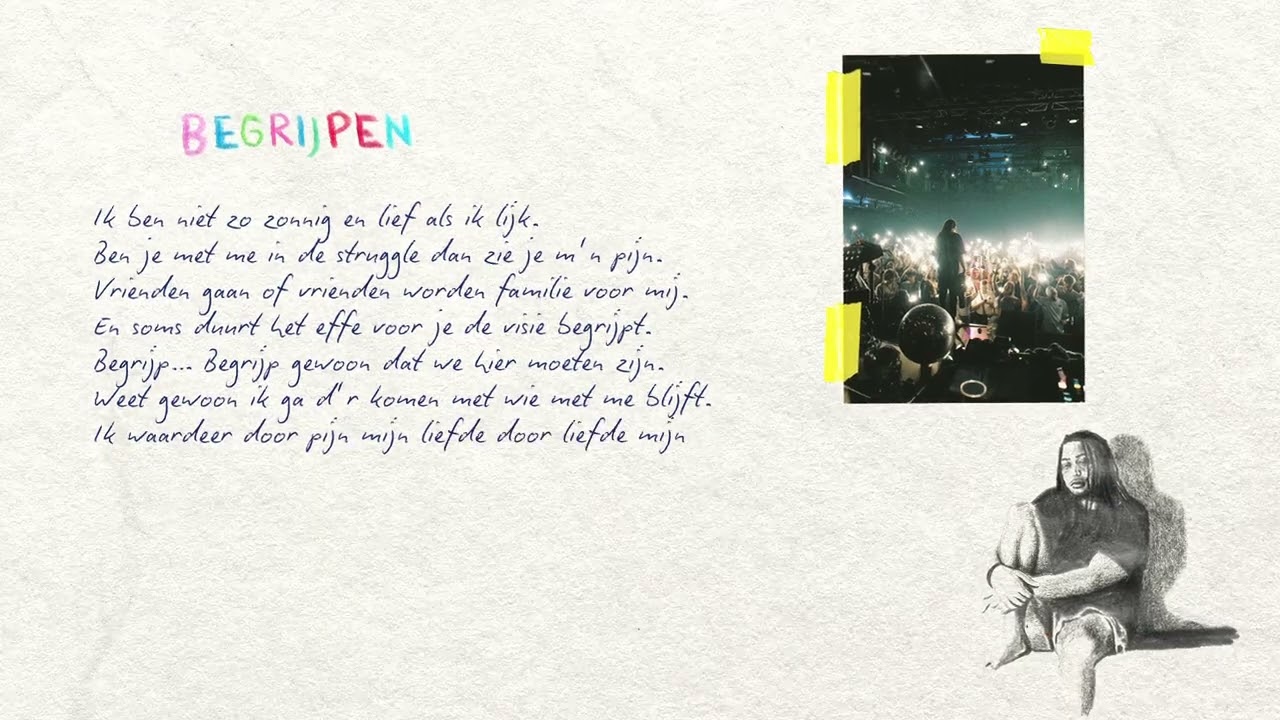 BEGRIJPEN
Ik ben niet zo zonnig en lief als ik lijk.
Ben je met me in de struggle dan zie je m'n pijn.
Vrienden gaan of vrienden worden familie voor mij.
En soms duurt het effe voor je de visie begrijpt.
Begrijp... Begrijp gewoon dat we hier moeten zijn.
Weet gewoon ik ga d'r komen met wie met me blijft.
Ik waardeer door pijn mijn liefde door liefde mijn